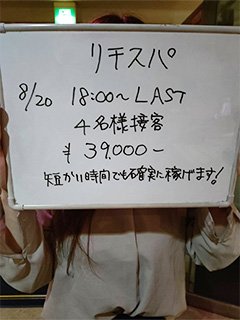 リチスパ
8/20 18:00～LAST
4名様接客
¥39.000−
短かい時間でも確実に稼げます!